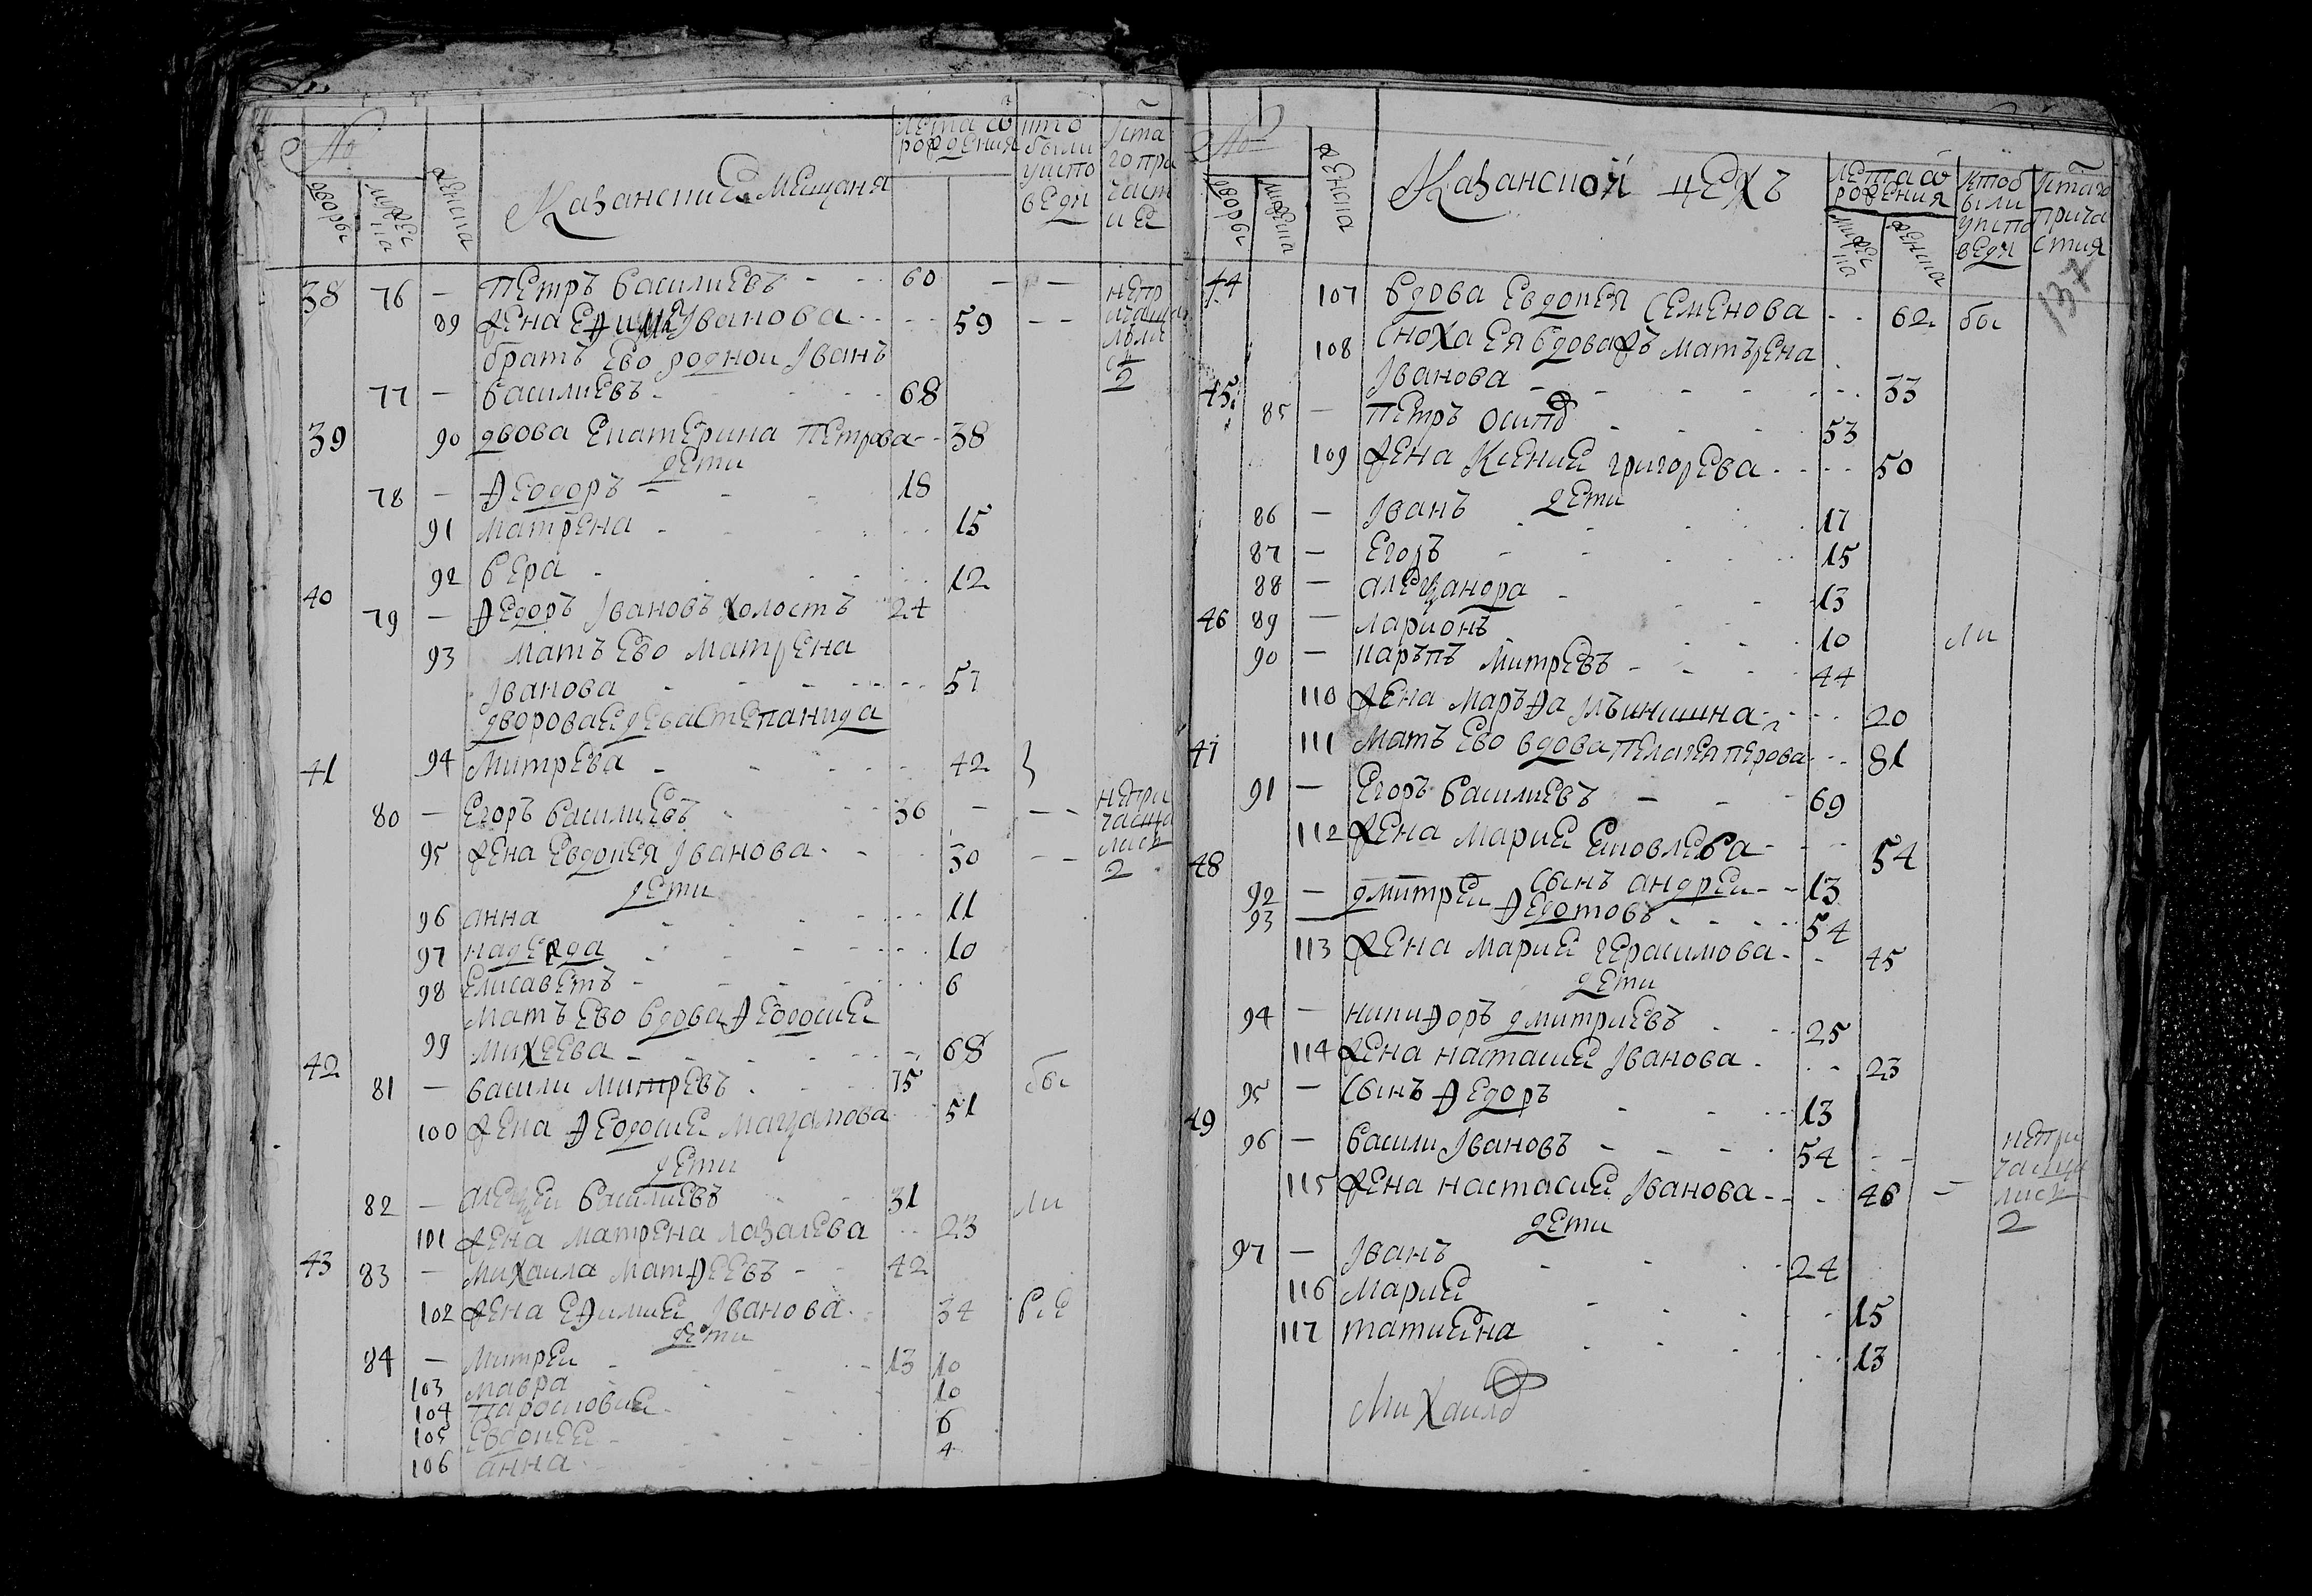 №
дворы
мужеска
женска
Казанские мещаня
лета от рождения
кто были у исповеди
и с таго причастие
38 76 — Петръ Василиевъ - - 60 — — —
89 жена Ефимие Iванова - - 59 - -
братъ ево родной Iванъ
77 — Василиевъ - - 68
непричащались 2
39 90 вдова Екатерина Петрова - - 38
дети
78 — Феодоръ - - 18
91 Матрена - - 15
92 Вера - - 12
40
79 — Федоръ Iвановъ холостъ 24
93 мать ево Матрена
Iванова - - 57
дворовае дева Степанида
41 94 Митрева - - 42
80 — Егоръ Василиевъ - - 36 — - -
95 жена Евдокея Iванова - - 30 - -
непричащались 2
дети
96 анна - - 11
97 надежда - - 10
98 Елисаветъ - - 6
мать ево вдова Феодосие
99 Михеева - - 68
42
81 — Васили Митревъ - - 75 бы
100 жена Феодосие - - 51
дети
82 — алексеи Василиевъ - - 31 ли
101 жена Матрена - - 23
43 83 — Михаила Матфеевъ - - 42
102 жена Ефимие Iванова - - 34 все
дети
84 — Митреи - - 13 10
103 мавра - - 10
104 Парасковие - - 6
105 Евдокее - - 4
106 анна - -
№
дворы
мужеска
женска
Казанской цехъ
лета от рождения
мужеска
женска
кто были у исповеди
и с таго причастия
137
44 107 вдова Евдокея Семенова - - 62 бы
108 сноха ея вдова жъ Матърена
Iванова - - 33
45
85 — Петръ Осипъ - - 53
109 жена Ксение григорева - - 50
дети
86 — Iванъ - - 17
87 — Егоръ - - 15
88 — алеѯандра - - 13
46 89 — Ларионъ - - 10 ли
90 — Карпъ Митревъ - - 44
110 жена Маръфа Iльинишна - - 20
47 111 мать ево вдова Пелагея - - 81
91 — Егоръ Василиевъ - - 69
112 жена Марие - - 54
48
92 — сынъ андреи - - 13
93 — дмитреи Федотовъ - - 54
113 жена Марие герасимова - - 45
дети
94 — Никифоръ дмитриевъ - - 25
114 жена настасие Iванова - - 23
95 — сынъ Федоръ - - 13
49
96 — Васили Iвановъ - - 54 - -
115 жена настасие Iванова - - 46 —
непричащились 2
дети
97 — Iванъ - - 24
116 Марие - - 15
117 татиена - - 13
Михаилъ